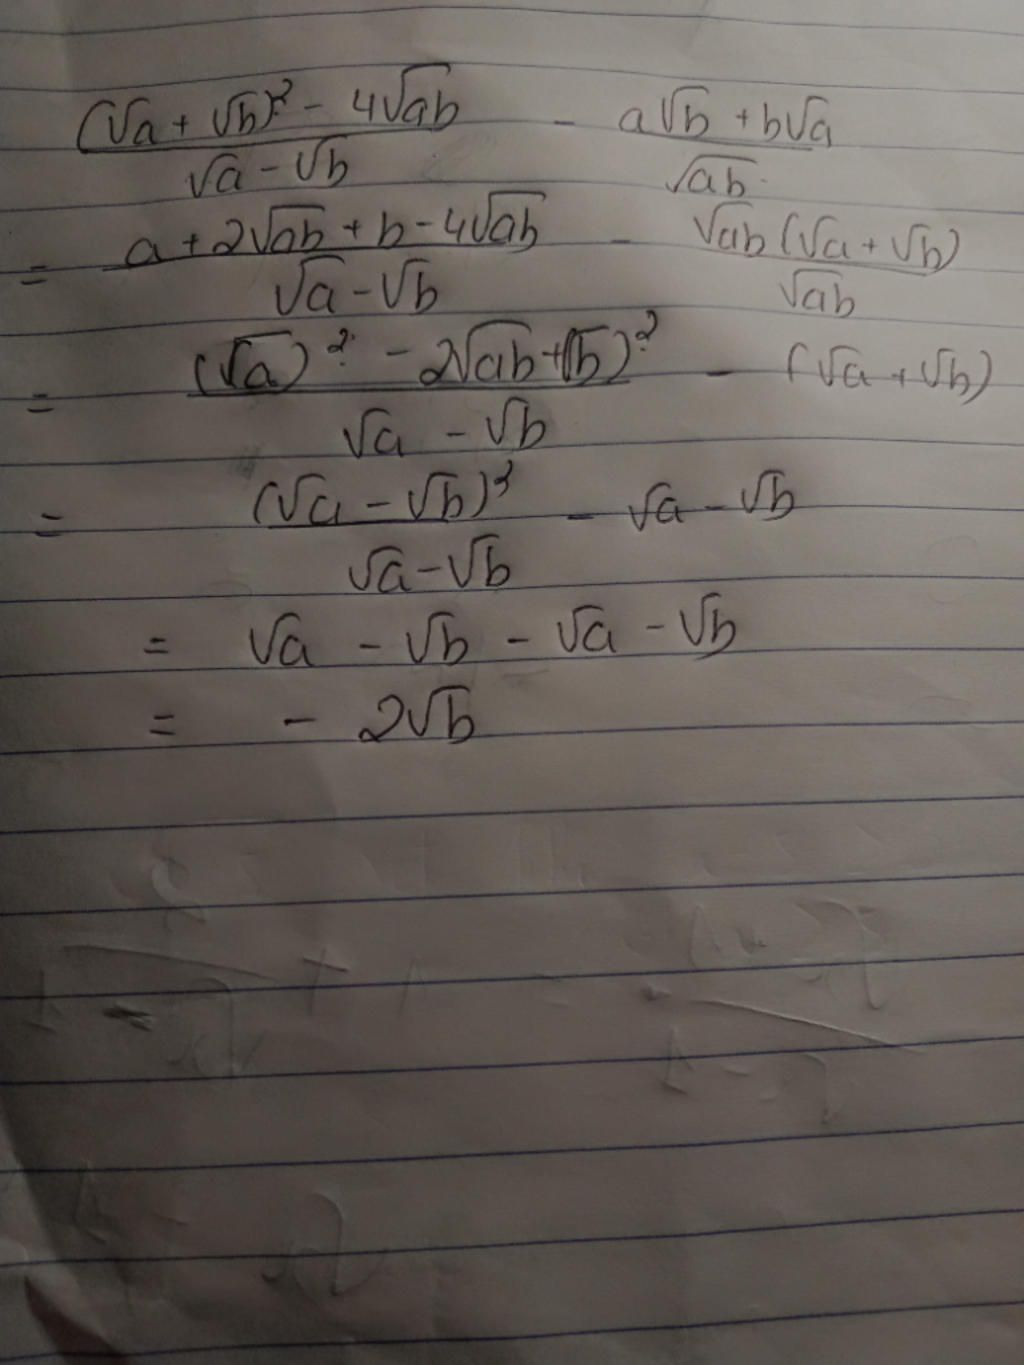 (√a + √b)² - 4√ab / √a - √b - a√b + b√a / √ab
= a + 2√ab + b - 4√ab / √a - √b - √ab (√a + √b) / √ab
= (√a)² - 2√ab + (√b)² / √a - √b - (√a + √b)
= (√a - √b)² / √a - √b - √a - √b
= √a - √b - √a - √b
= - 2√b